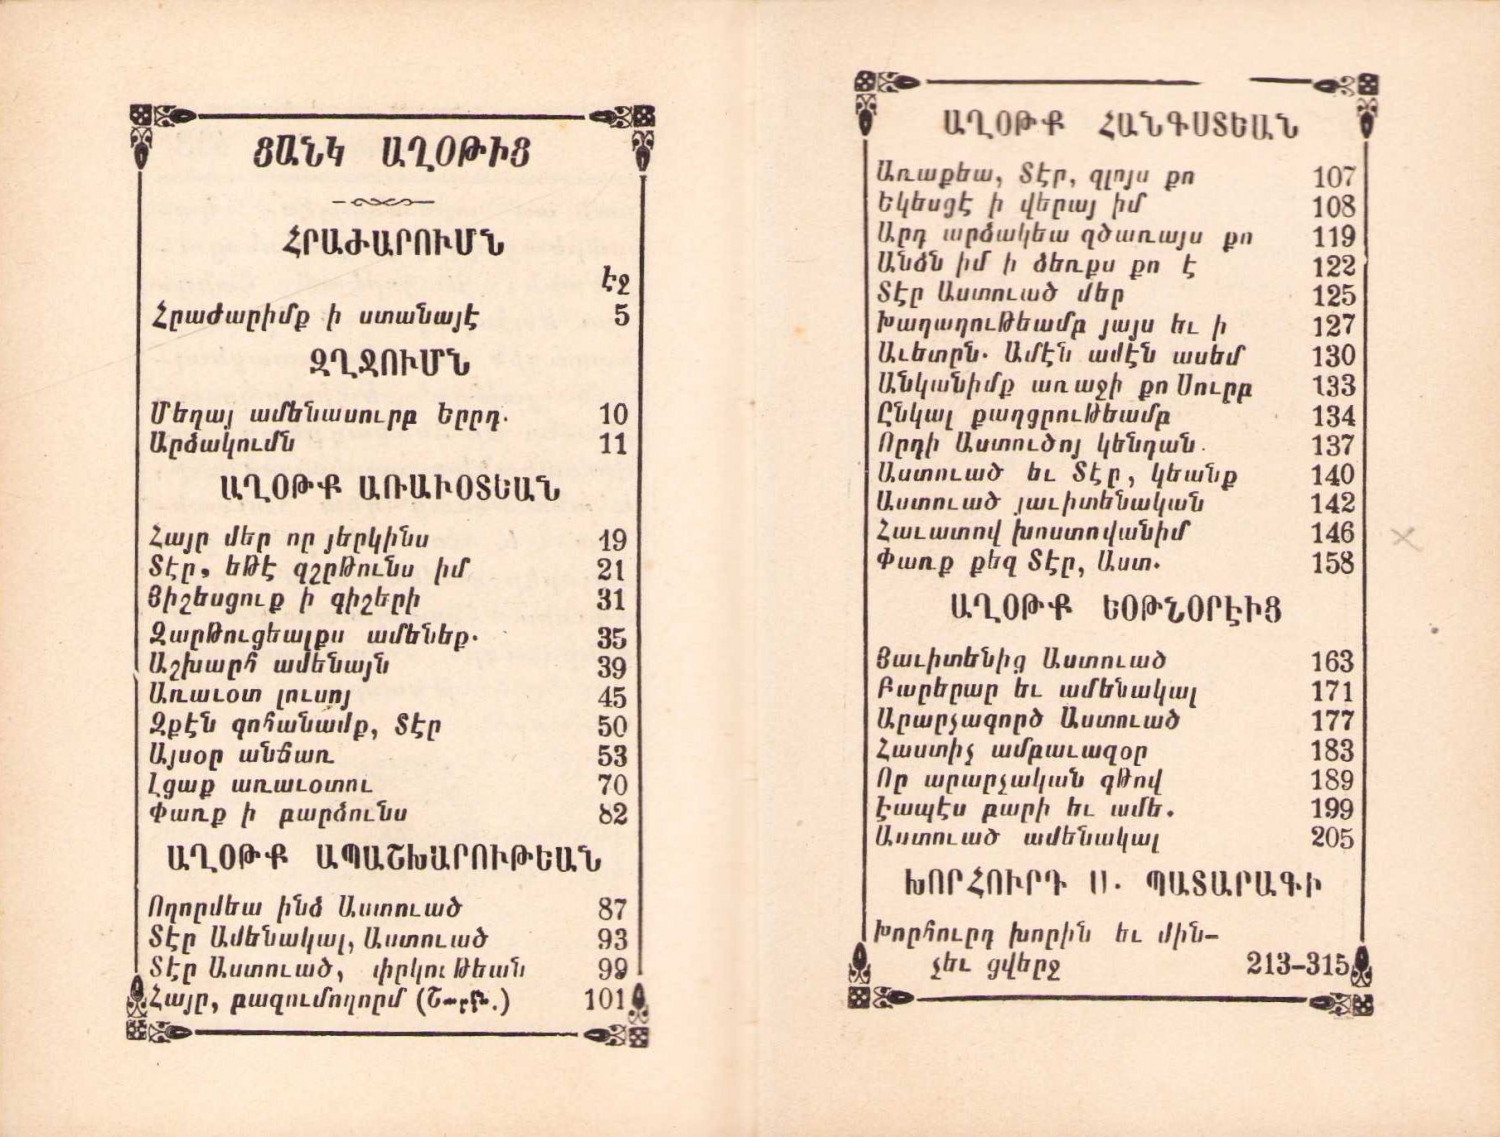 ՑԱՆԿ ԱՂՕԹԻՑ
ՀՐԱԺԱՐՈՒՄՆ
էջ
Հրաժարիմք ի ստանայէ 5
ԶՂՋՈՒՄՆ
Մեղայ ամենասուրբ Երրդ. 10
Արձակումն 11
ԱՂՕԹՔ ԱՌԱՒՕՏԵԱՆ
Հայր մեր որ յերկինս 19
Տէր, եթէ զշրթունս իմ 21
Յիշեսցուք ի գիշերի 31
Զարթուցեալքս ամենեք. 35
Աշխարհ ամենայն 39
Առաւօտ լուսոյ 45
Զքէն գոհանամք, Տէր 50
Այսօր անճառ 53
Լցաք առաւօտու 70
Փառք ի բարձունս 82
ԱՂՕԹՔ ԱՊԱՇԽԱՐՈՒԹԵԱՆ
Ողորմեա ինձ Աստուած 87
Տէր Ամենակալ, Աստուած 93
Տէր Աստուած, փրկութեան 99
Հայր, բազումողորմ (Շար.) 101
ԱՂՕԹՔ ՀԱՆԳՍՏԵԱՆ
Առաքեա, Տէր, զլոյս քո 107
Եկեսցէ ի վերայ իմ 108
Արդ արձակեա զծառայս քո 119
Անձն իմ ի ձեռքս քո է 122
Տէր Աստուած մեր 125
Խաղաղութեամբ յայս եւ ի 127
Աւետրն. Ամէն ամէն ասեմ 130
Անկանիմք առաջի քո Սուրբ 133
Ընկալ քաղցրութեամբ 134
Որդի Աստուծոյ կենդան. 137
Աստուած եւ Տէր, կեանք 140
Աստուած յաւիտենական 142
Հաւատով խոստովանիմ 146
Փառք քեզ Տէր, Աստ. 158
ԱՂՕԹՔ ԵՕԹՆՕՐԷԻՑ
Յաւիտենից Աստուած 163
Բարերար եւ ամենակալ 171
Արարչագործ Աստուած 177
Հաստիչ ամբաւազօր 183
Որ արարչական գթով 189
Էապէս բարի եւ ամե. 199
Աստուած ամենակալ 205
ԽՈՐՀՈՒՐԴ Ս. ՊԱՏԱՐԱԳԻ
Խորհուրդ խորին եւ մին-
չեւ ցվերջ 213-315